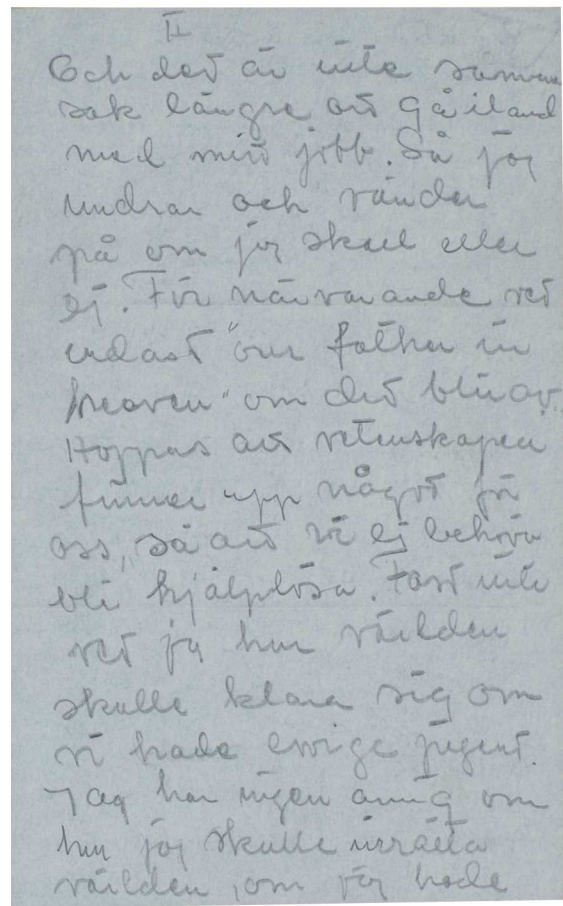 II
Och det är inte samma
sak längre att gå iland
med mitt jobb. Så jag
undrar och vänder
på om jag skall eller
ej. För närvarande vet
endast "our father in
heaven" om det blir av.
Hoppas att vetenskapen
finner upp något för
oss, så att vi ej behöva
bli hjälplösa. Fast inte
vet jag hur världen
skulle klara sig om
vi hade ewige jugent.
Jag har ingen aning om
hur jag skulle
världen, om jag hade